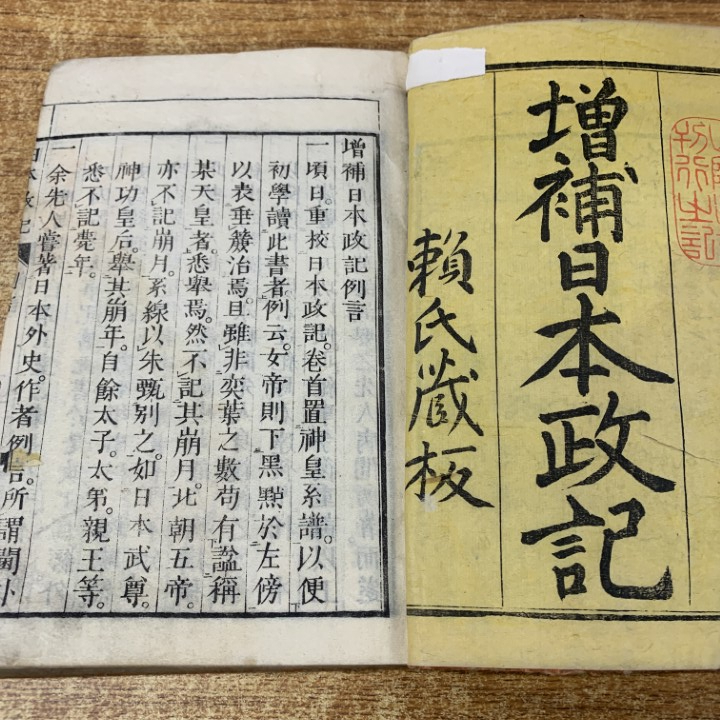 増補日本政記
賴氏蔵板
增補日本政記例言
一頃日。重校日本政記。卷首置神皇系譜。以便
初學讀此書者例云。女帝則下黑㸃於左傍
以表垂簾治焉。且雖非奕葉之數苟有謚稱
某天皇者。悉舉焉。然不記其崩月。北朝五帝。
亦不記崩月。系線以朱甄別之。如日本武尊。
神功皇后。舉其崩年。自餘太子。太弟。親王等。
悉不記薨年。
一余先人嘗著日本外史。作者例言。所謂閫外
日本政記